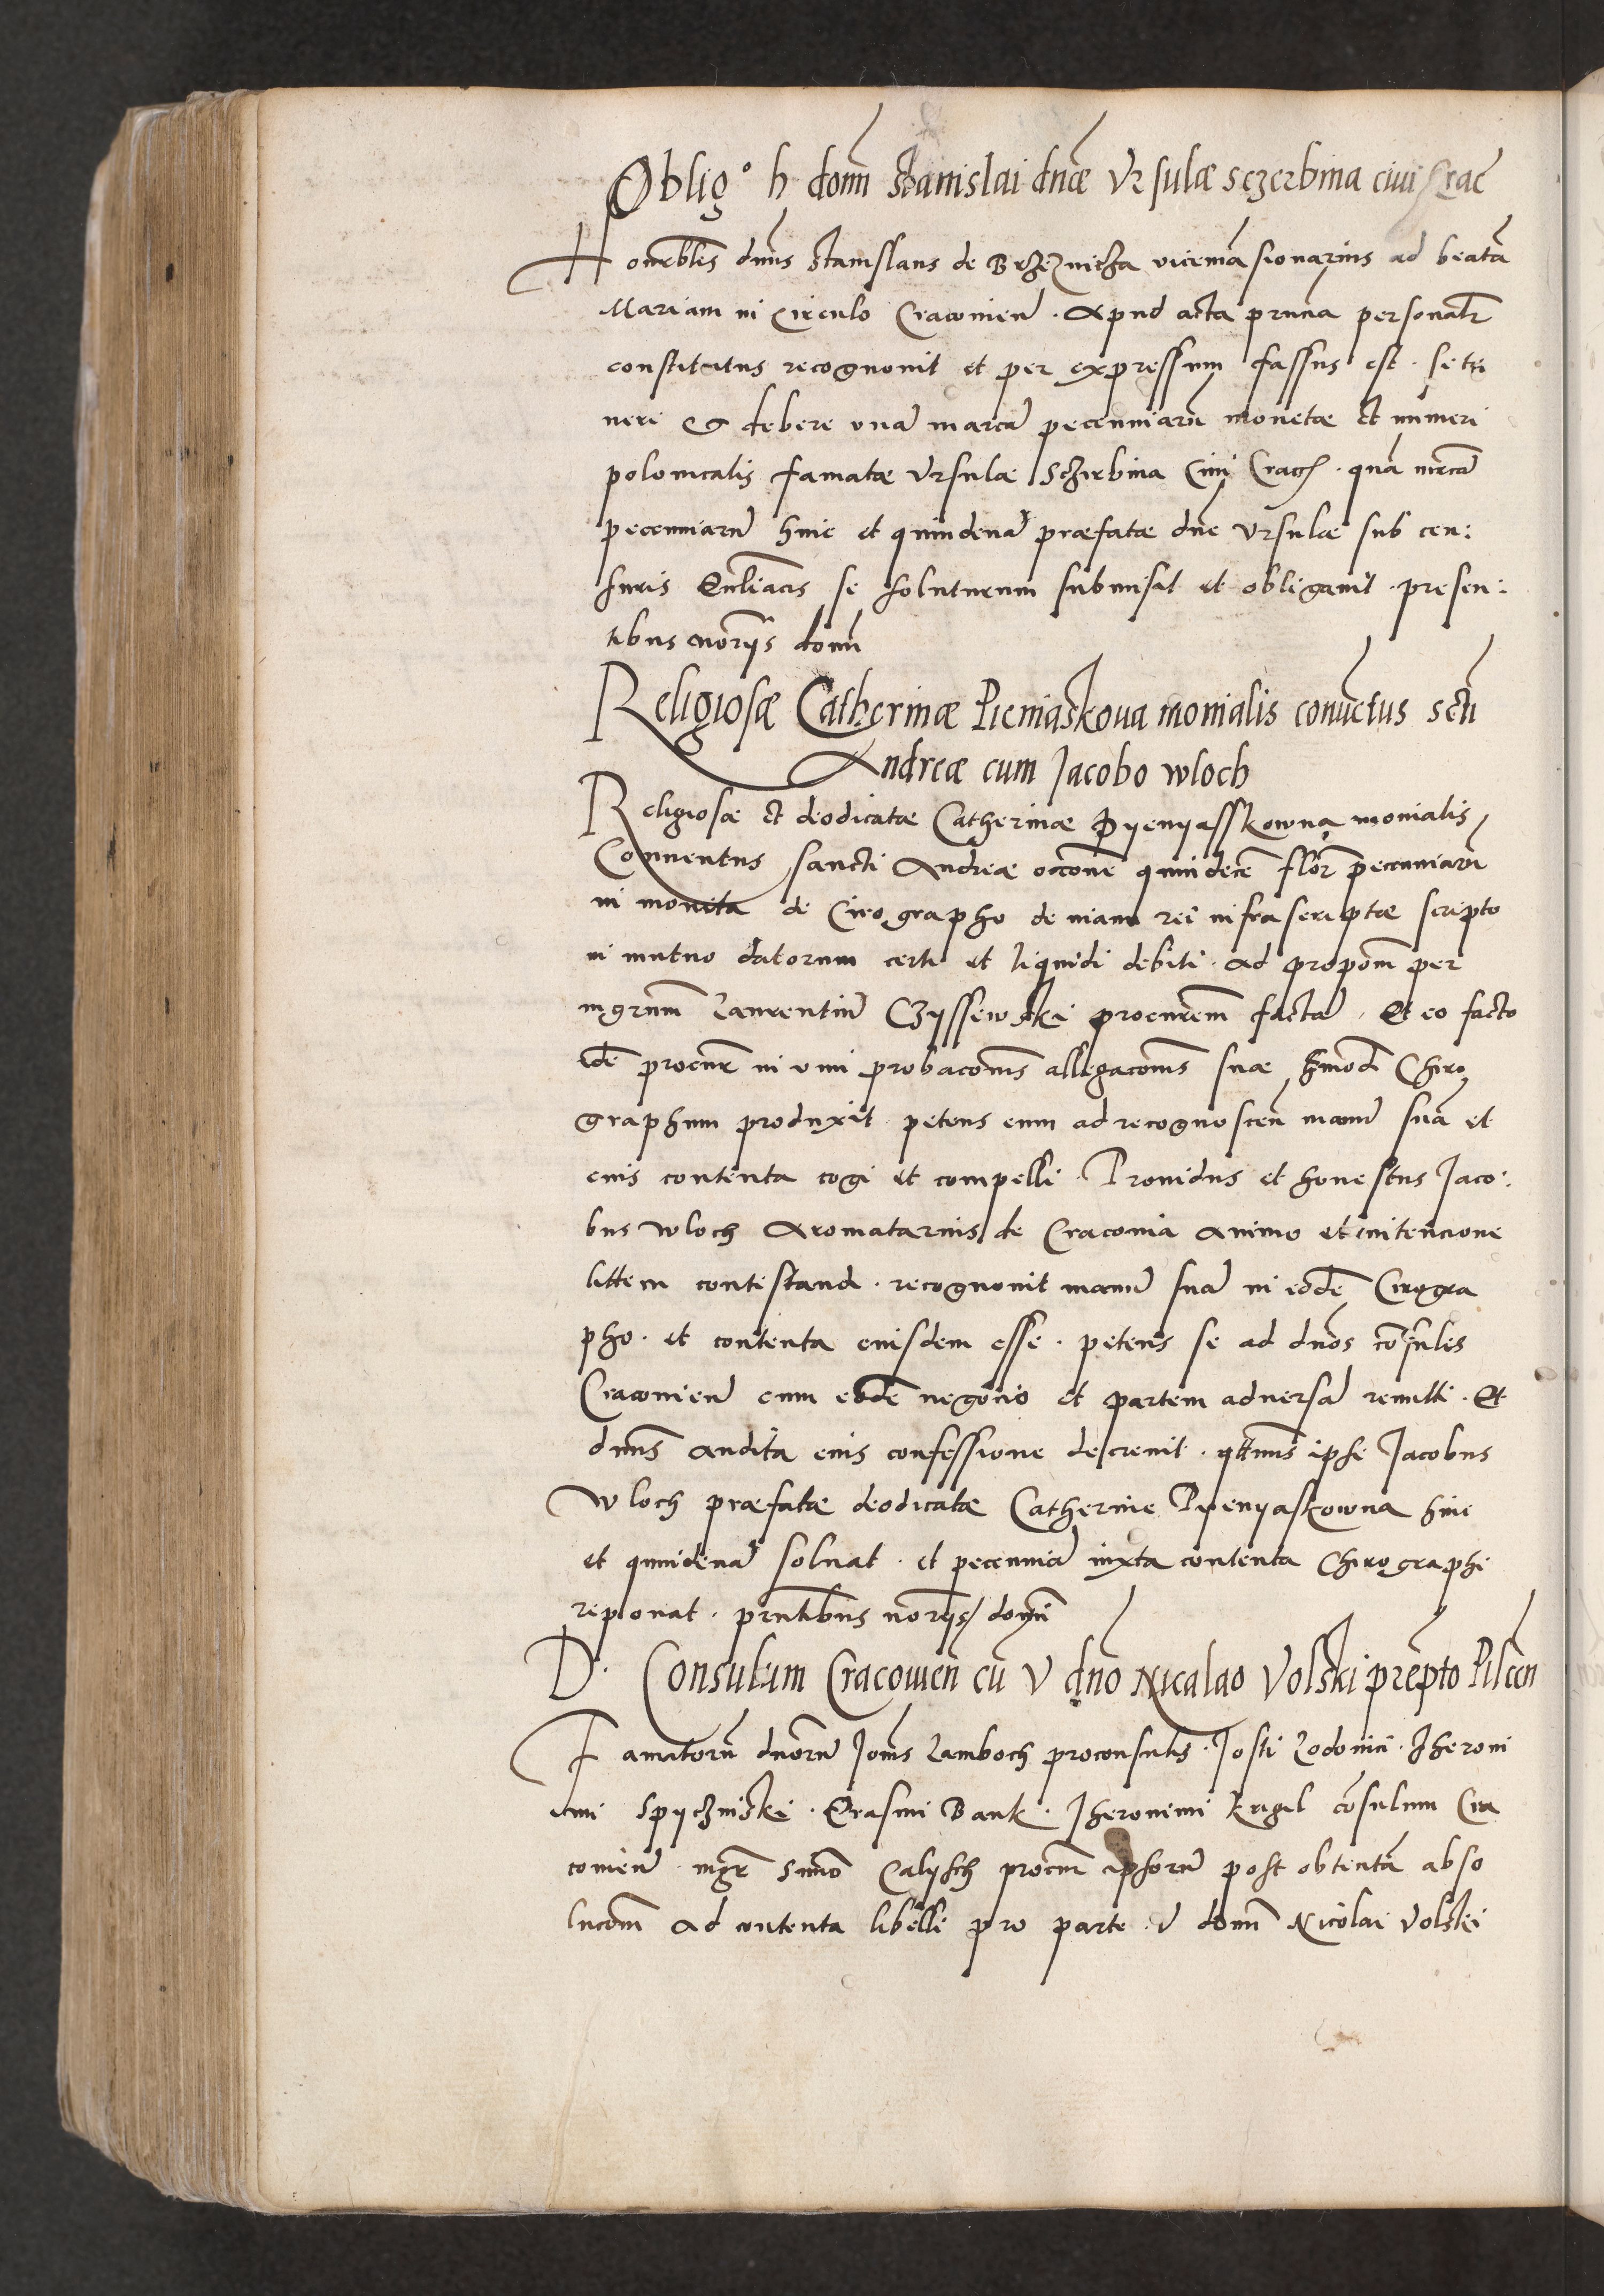 Oblig° h domī Stanislai dnæ Vrsulæ Sczerbina ciui Crac̄
Honrēbles dnūs Stanislaus de Brzeznicza vicemāsionarius ad beatā
Mariam in Circulo Cracouien̄ . Apud acta prnīa personalr̄
constitutus recognouit et per expressum fassus est . se te
neri & debere vnā marcā pecunniarū monetæ et numeri
polonicalis famatæ Vrsulæ Sczirbina Ciui Crac . quā mrcā
pecunniarū hinc et quindenā præfatæ dnē Vrsulæ sub cen:
suris Ecl̄iacis se soluturum submisit et obligauit . presen:
tibus norijs domī
Religiosæ Catherinæ Pieniaskoua monialis conuētus sctī
Andreæ cum Jacobo wloch
Religiosæ et deodicatæ Catherinæ Pyenyasskowna monialis
Conuentus sancti Andreæ occōne quindecē flor̄ pecunniarū
in moneta de Cirographo de manu rei infrascriptæ scripto
in mutuo datorum certi et liquidi debiti . ad propōm per
mgrūm Laurentiū Czyssewski procurēm factā . Et eo facto
idē procur̄ in vim probacōnis allegacōnis suæ hmōdi Chiro
graphum produxit petens eum ad recognoscen̄ manū suā et
eius contenta cogi et compelli . Prouidus et honestus Jaco:
bus wloch Aromatarius de Craconia animo et intencione
littem contestandi . recognouit manū suā in eodē Cirogra
pho . et contenta eiusdem esse . petens se ad dnōs cōsules
Cracouien̄ cum eodē negocio et partem aduersā remitti . Et
dnūs audita eius confessione decreuit . qtēnus ipse Jacobus
wloch præfatæ deodicatæ Catherine Pyenyaskowna hinc
et quindenā soluat . et pecunniā iuxta contenta Chirographi
reponat . prntībus norijs domī
D. Consulum Cracouien̄ cū V dnō Nicalao Volski prēpto Pilcen
Famatorū dnōrū Joānis Lamboch proconsulis . Josti Lodouici . Jheroni
mi Spyczniski . Erasmi Bank . Jheronimi Krigel cōsulum Cra
couien̄ mgr̄ Simō Calysch procur̄ ipsorū post obtentā abso
lucōm ad contenta libelli pro parte V domī Nicolai Volski